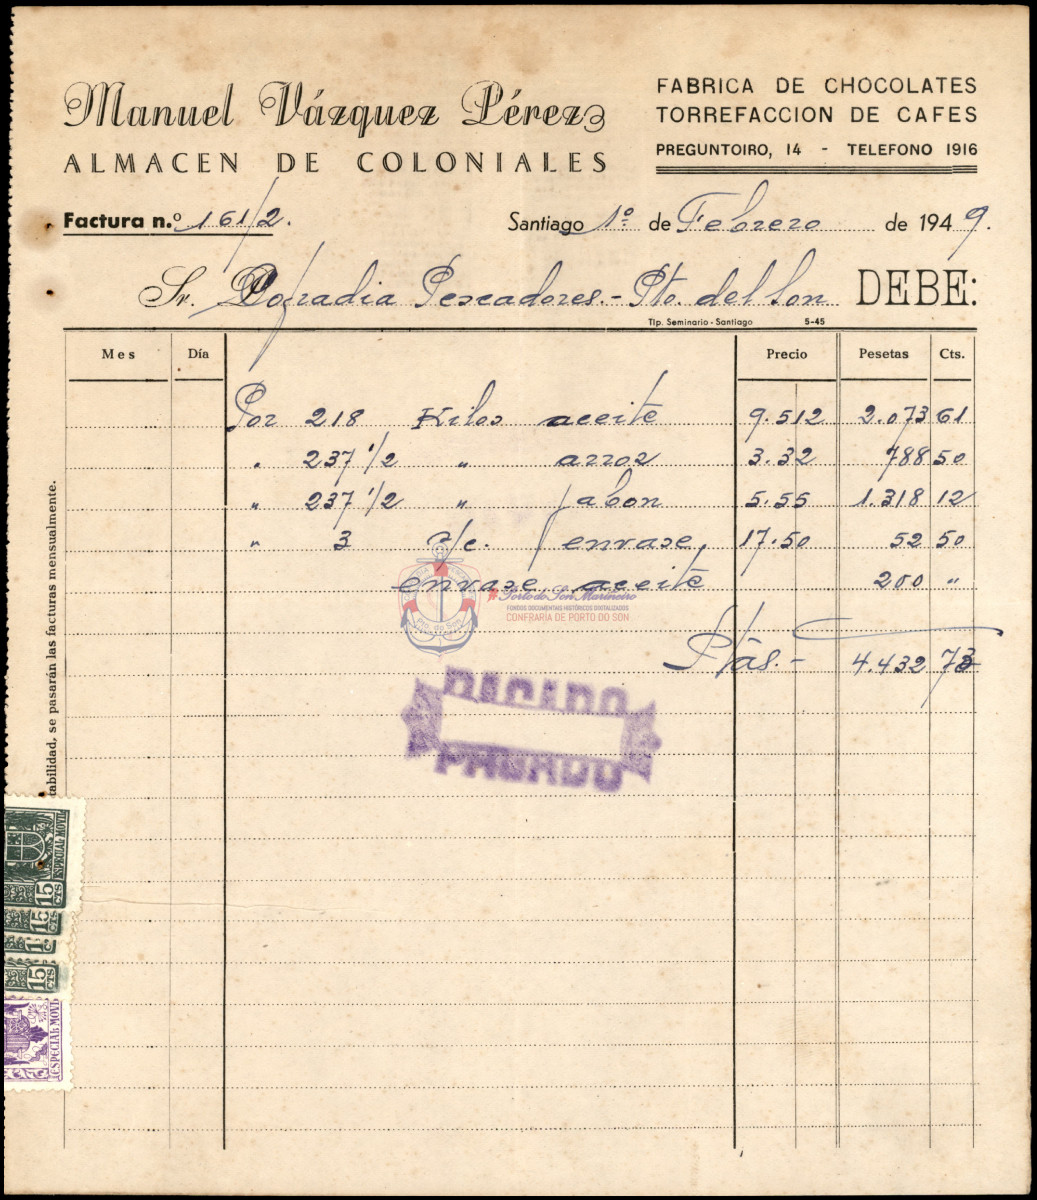 Manuel Vázquez Pérez
ALMACEN DE COLONIALES
FABRICA DE CHOCOLATES
TORREFACCION DE CAFES
PREGUNTOIRO, 14 - TELEFONO 1916
Factura n.º 161/2.
Santiago 1º de Febrero de 1949.
Sr. Cofradia Pescadores.- Pto. del Son DEBE:
Tip. Seminario - Santiago 5-45
Mes Día Precio Pesetas Cts.
Por 218 Kilos aceite 9.512 2.073 61
" 237 1/2 " arroz 3.32 788 50
" 237 1/2 " jabon 5.55 1.318 12
" 3 s/c. envase 17.50 52 50
envase aceite 200 "
Ptas.- 4.432 73
#Porto do Son Mariñeiro
FONDOS DOCUMENTAIS HISTÓRICOS DIXITALIZADOS
CONFRARÍA DE PORTO DO SON
Pto. do Son
PAGADO
PAGADO
tabilidad, se pasarán las facturas mensualmente.
ESPECIAL MOVIL
15 CTS
15 CTS
15 CTS
ESPECIAL MOVIL